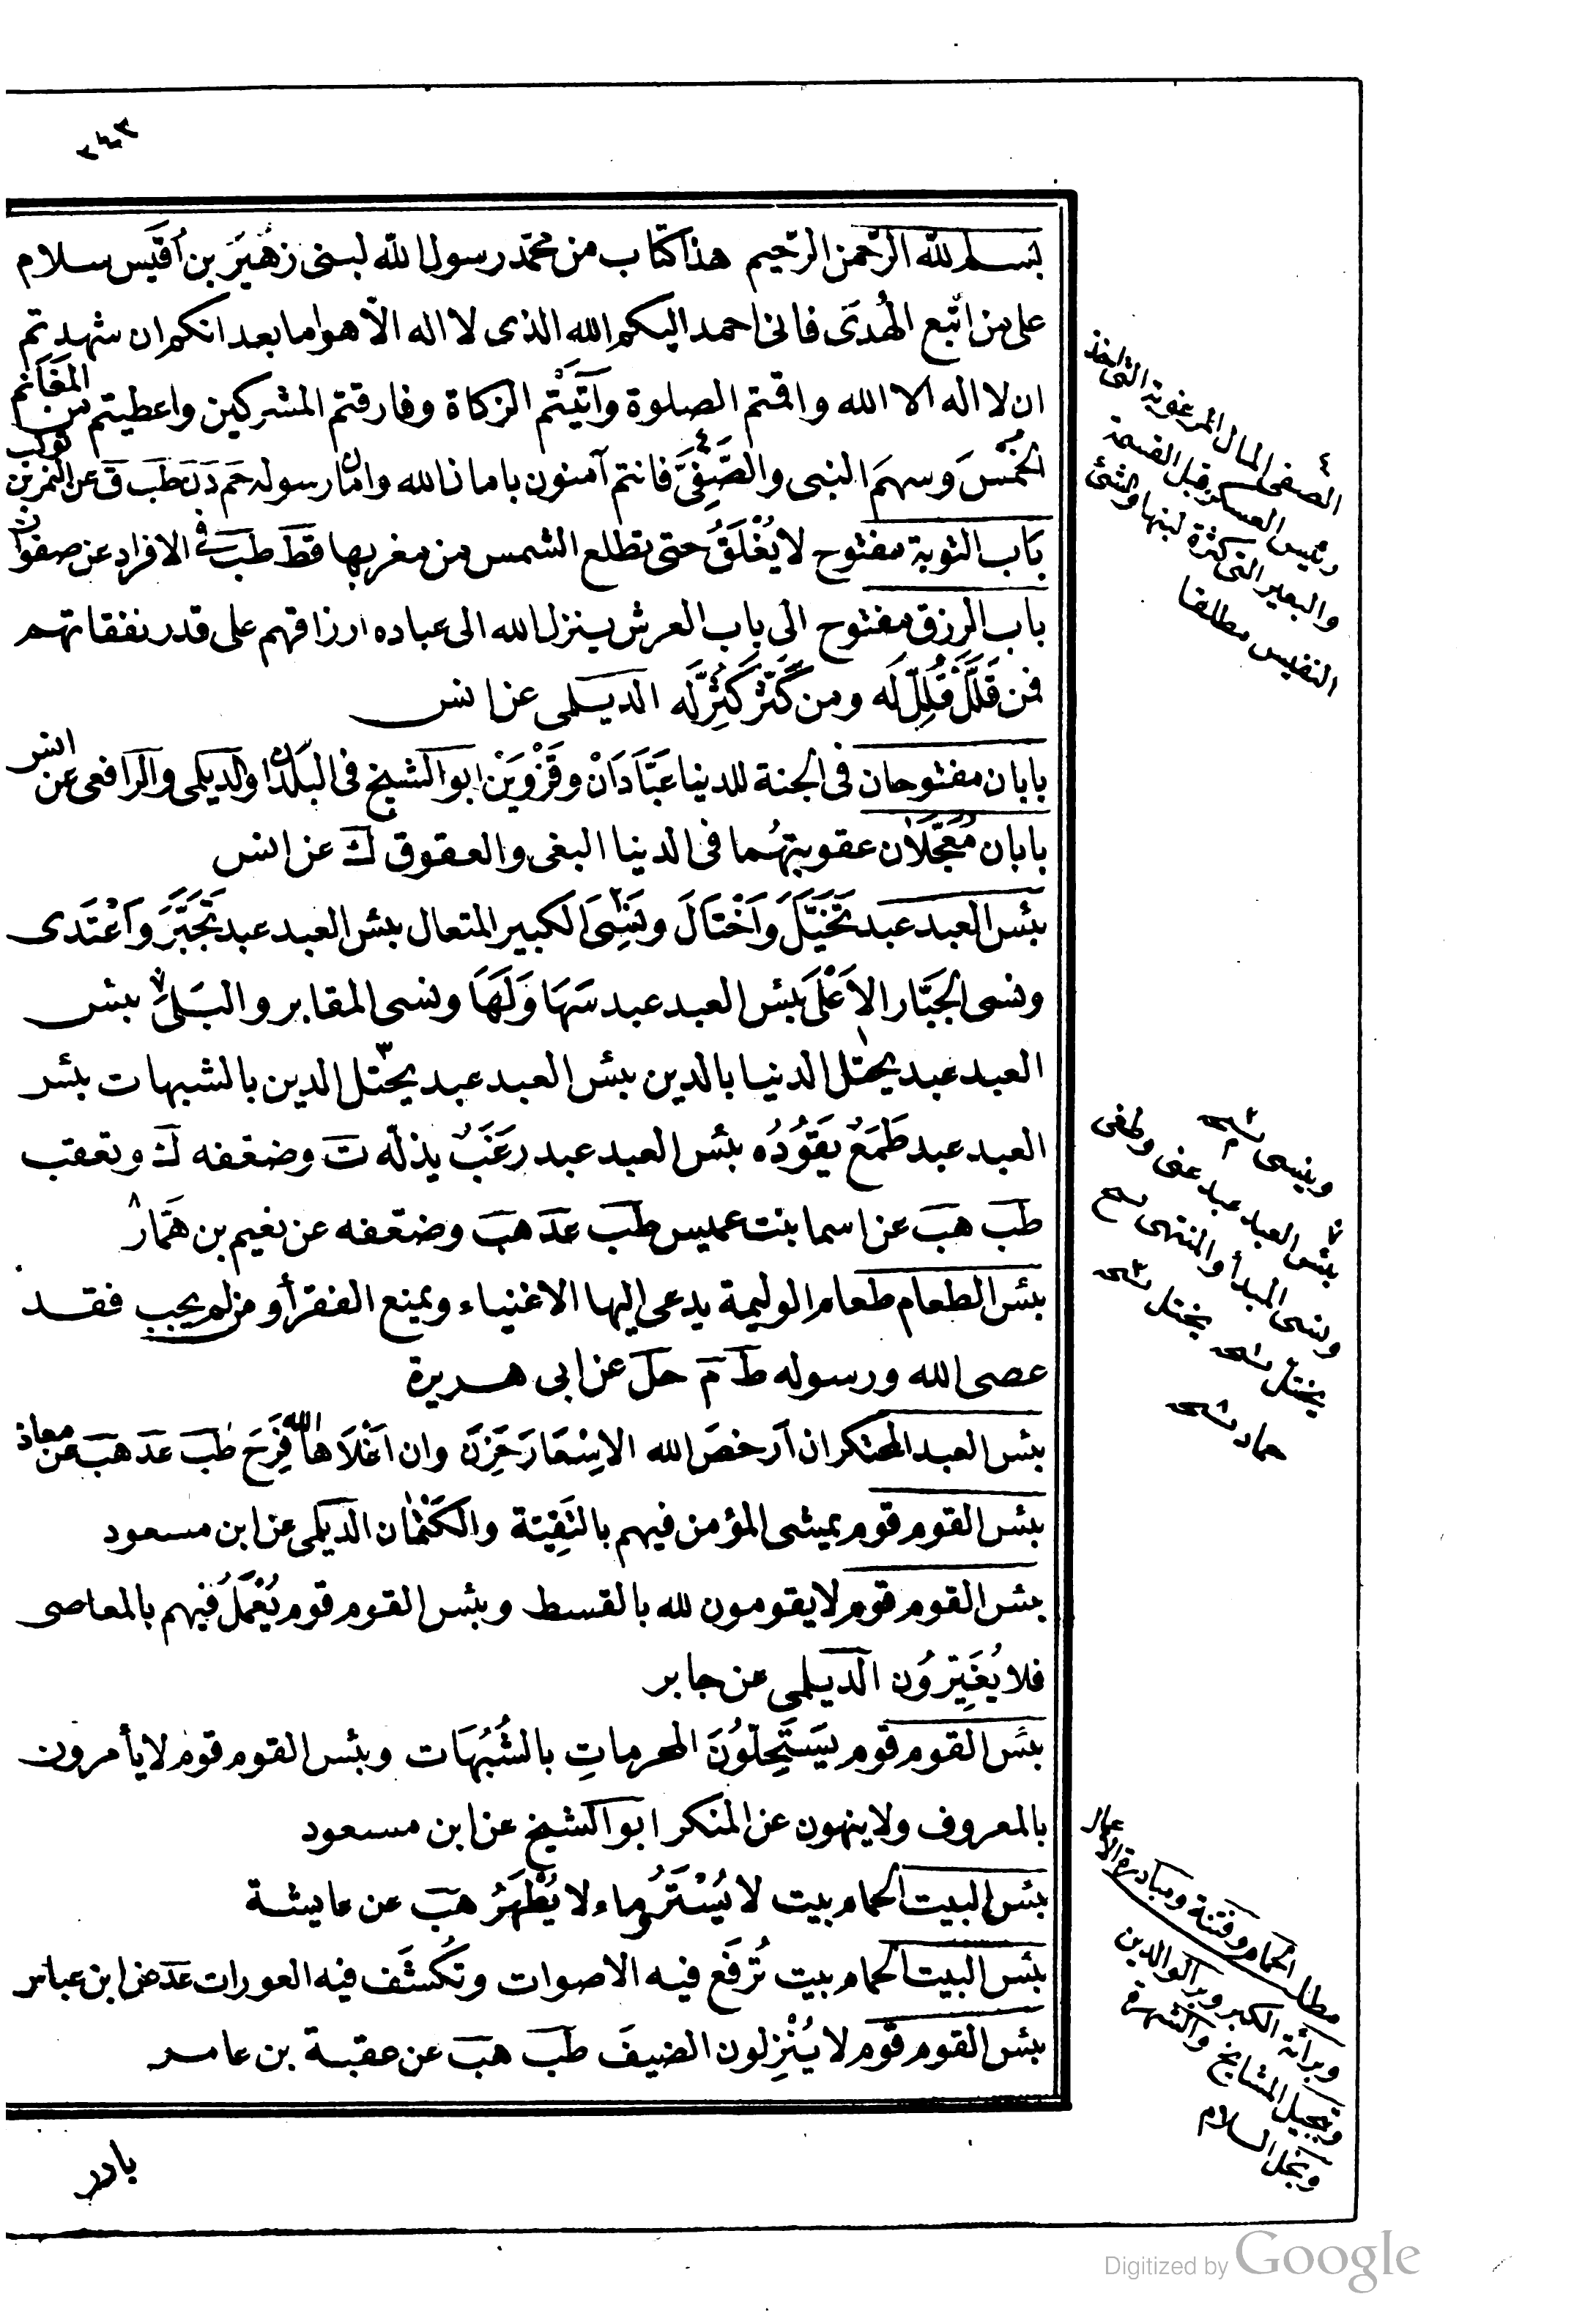 ٢٤٣
بسم الله الرّحمن الرّحيم هذا كتاب من محمّد رسول الله لبنى زهَير بن اُقَيس سلام
على من اتّبع الهُدَى فانى احمد اليكم الله الذى لا اله الّا هو اما بعد انكم ان شهدتم
ان لا اله الا الله واقمتم الصلوة وآتَيْتُم الزكاة وفارقتم المشركين واعطيتم من المَغَانم
الخُمُسَ وسهمَ النبى والصَّفِىَّ ٤ فانتم آمنون بامان الله وامان رسوله حَم دَ نَ طَب قَ عن النمر بن تولب
بَاب التوبة مفتوح لا يُغْلَقُ حتى تطلع الشمس من مغربها قطَ طَبَ فى الافراد عن صفوان
باب الرزق مفتوح الى باب العرش ينزل الله الى عباده ارزاقهم على قدر نفقاتهم
فمن قَلَّلَ قُلِّلَ لَه ومن كَثَّرَ كُثِّرَ لَه الديلمى عن انس
بابان مفتوحان فى الجنة للدنيا عَبَّادَانْ وقَزْوِيَنْ ابو الشيخ فى البلدان والديلمى والرافعى عن انس
بابان مُعَجَّلَان عقوبتهُما فى الدنيا البغى والعقوق كَ عن انس
بئس العبد عبد تَخَيَّلَ وَاخْتَالَ ونَسِىَ ٢ الكبير المتعال بئس العبد عبد تَجَبَّرَ وَاعْتَدَى
ونسى الجَبَّار الاَعْلَى بئس العبد عبد سَهَا وَلَهَا ونسى المقابر والبَلىَ ٧ بئس
العبد عبد يختل ١ الدنيا بالدين بئس العبد عبد يختل ٣ الدين بالشبهات بئس
العبد عبد طَمَعٌ يَقُوْدُه بئس العبد عبد رَغَبٌ يذلّه تَ وضعّفه كَ وتعقب
طَب هَبَ عن اسما بنت عميس طَب عَد هَبَ وضعّفه عن نعيم بن هَمّار ٨
بئس الطعام طعام الوليمة يدعى اليها الاغنياء ويمنع الفقرأ ومن لم يجب فقد
عصى الله ورسوله طَ مَ حَلَ عن ابى هريرة
بئس العبد المحتكر ان اَرخصَ الله الاسْعَارَ حَزِنَ وان اَغْلَاهَا الله فَرِحَ طَب عَد هَبَ عن معاذ
بئس القوم قوم يمشى المؤمن فيهم بالتَقِيّة والكَتْمان الديلمى عن ابن مسعود
بئس القوم قوم لا يقومون لله بالقسط وبئس القوم قوم يُعْمَلُ فيهم بالمعاصى
فلا يُغَيِّرُون الديلمى عن جابر
بئس القوم قوم يَسْتَحِلّوُنَ المحرماتِ بالشُبُهَات وبئس القوم قوم لا يأمرون
بالمعروف ولا ينهون عن المنكر ابو الشيخ عن ابن مسعود
بئس البيت الحمام بيت لا يُسْتَرُ وماء لا يُطْهَرُ هَبَ عن عايشة
بئس البيت الحمام بيت تُرفَع فيه الاصوات وتُكشَف فيه العورات عَد عن ابن عباس
بئس القوم قوم لا يُنْزِلون الضيفَ طَب هَبَ عن عقبة بن عامر
بادر
٤ الصفى المال المرغوبة التى اخذ
رئيس العسكر قبل القسمة
والبعير التى كثرة لبنها والشئ
النفيس مطلقا
وينسى نسخه ٢
٧ بئس العبد عبد عتى وطغى
ونسى المبدأ والمنتهى نسخ
يختل نسخه ١ يختل نسخه ٣
حماد نسخه ٨
مطلب الحمام وفتنة ومبادرة الأعمال
وبرأئة الكبر وبر الوالدين
وتبجيل المشايخ والشهرة
وبخل السلام
Digitized by Google